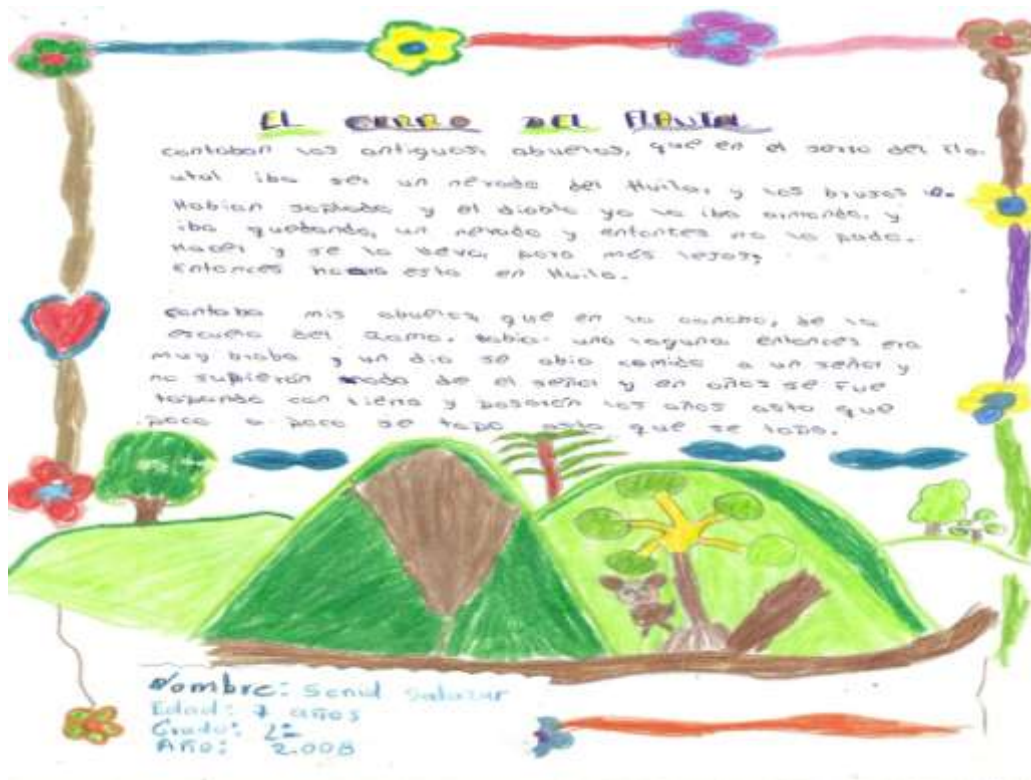 EL CERRO DEL FLAUTAL
contaban los antiguos, abuelos, que en el serro del fla-
utal iba ser un nevado del Huila, y los brujos
Habian soplado y el diablo ya lo iba armando, y
iba quedando, un nevado y entonces no lo pudo.
Hacer y se lo llevo, para más lejos;
Entonces esta en Huila.
contaba mis abuelos, que en la cancha, de la
escuela del abia una laguna entonces era
muy braba y un dia se abia comido a un señor y
no supieron nada de el señor y en años se fue
tapando con tierra y pasaron los años asta que
poco a poco se tapo asta que se tapo.
Nombre: Senid Salazar
Edad: 7 años
Grado: 2º
Año: 2.008